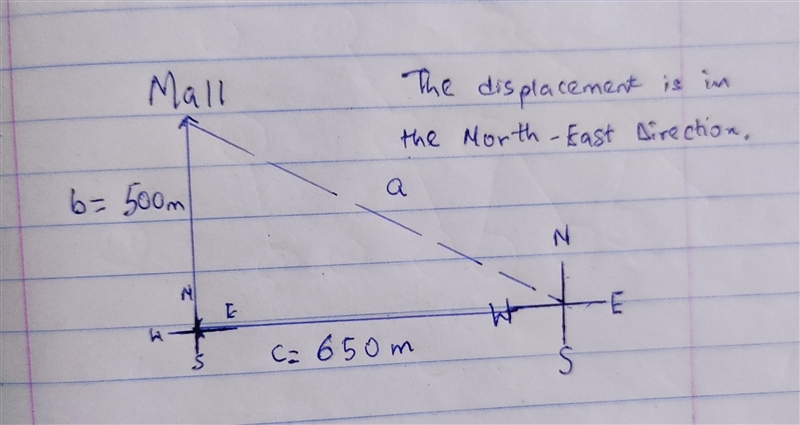 Mall
The displacement is in
the North-East Direction.
b= 500m
a
N
N
E
W
E
W
S
c= 650 m
S